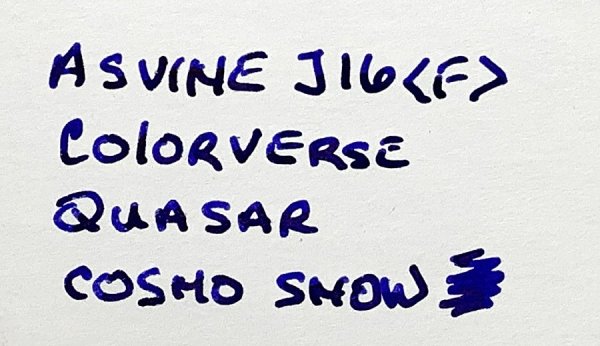 ASVINE J16 <F>
ColoRVERSE
QUASAR
COSMO SNOW